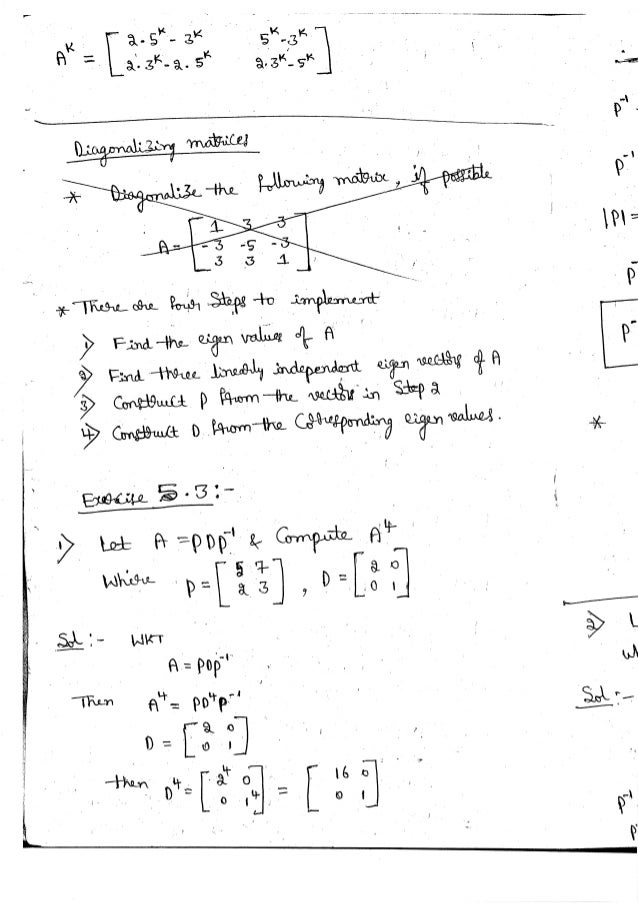 A^K = [ 2·5^K - 3^K   5^K - 3^K
2·3^K - 2·5^K   2·3^K - 5^K ]
Diagonalizing matrices
* Diagonalize the following matrix, if possible
A = [ 1 3 3
-3 -5 -3
3 3 1 ]
* There are four Steps to implement
1> Find the eigen values of A
2> Find three linearly independent eigen vectors of A
3> Construct P from the vectors in Step 2
4> Construct D from the Corresponding eigen values.
Exercise 5.3:-
1> Let A = PDP^-1 & Compute A^4
Where P = [ 5 7
2 3 ], D = [ 2 0
0 1 ]
Sol:- WKT
A = PDP^-1
Then A^4 = PD^4P^-1
D = [ 2 0
0 1 ]
then D^4 = [ 2^4 0
0 1^4 ] = [ 16 0
0 1 ]
P^-1
P^-1
|P| =
P^-
P^-
*
2> L
Sol:-
P^-1
P